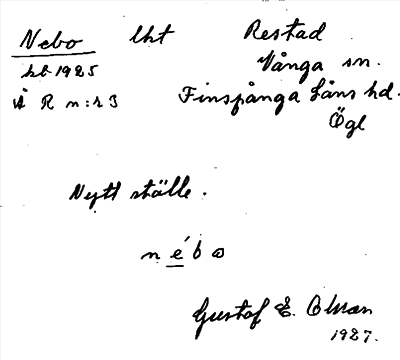 Nebo lht Restad
hb 1925 Vånga sn.
Å R n:r 3 Finspånga läns hd.
Ögl
Nytt ställe.
n é b o
Gustaf E. Olsson
1927.